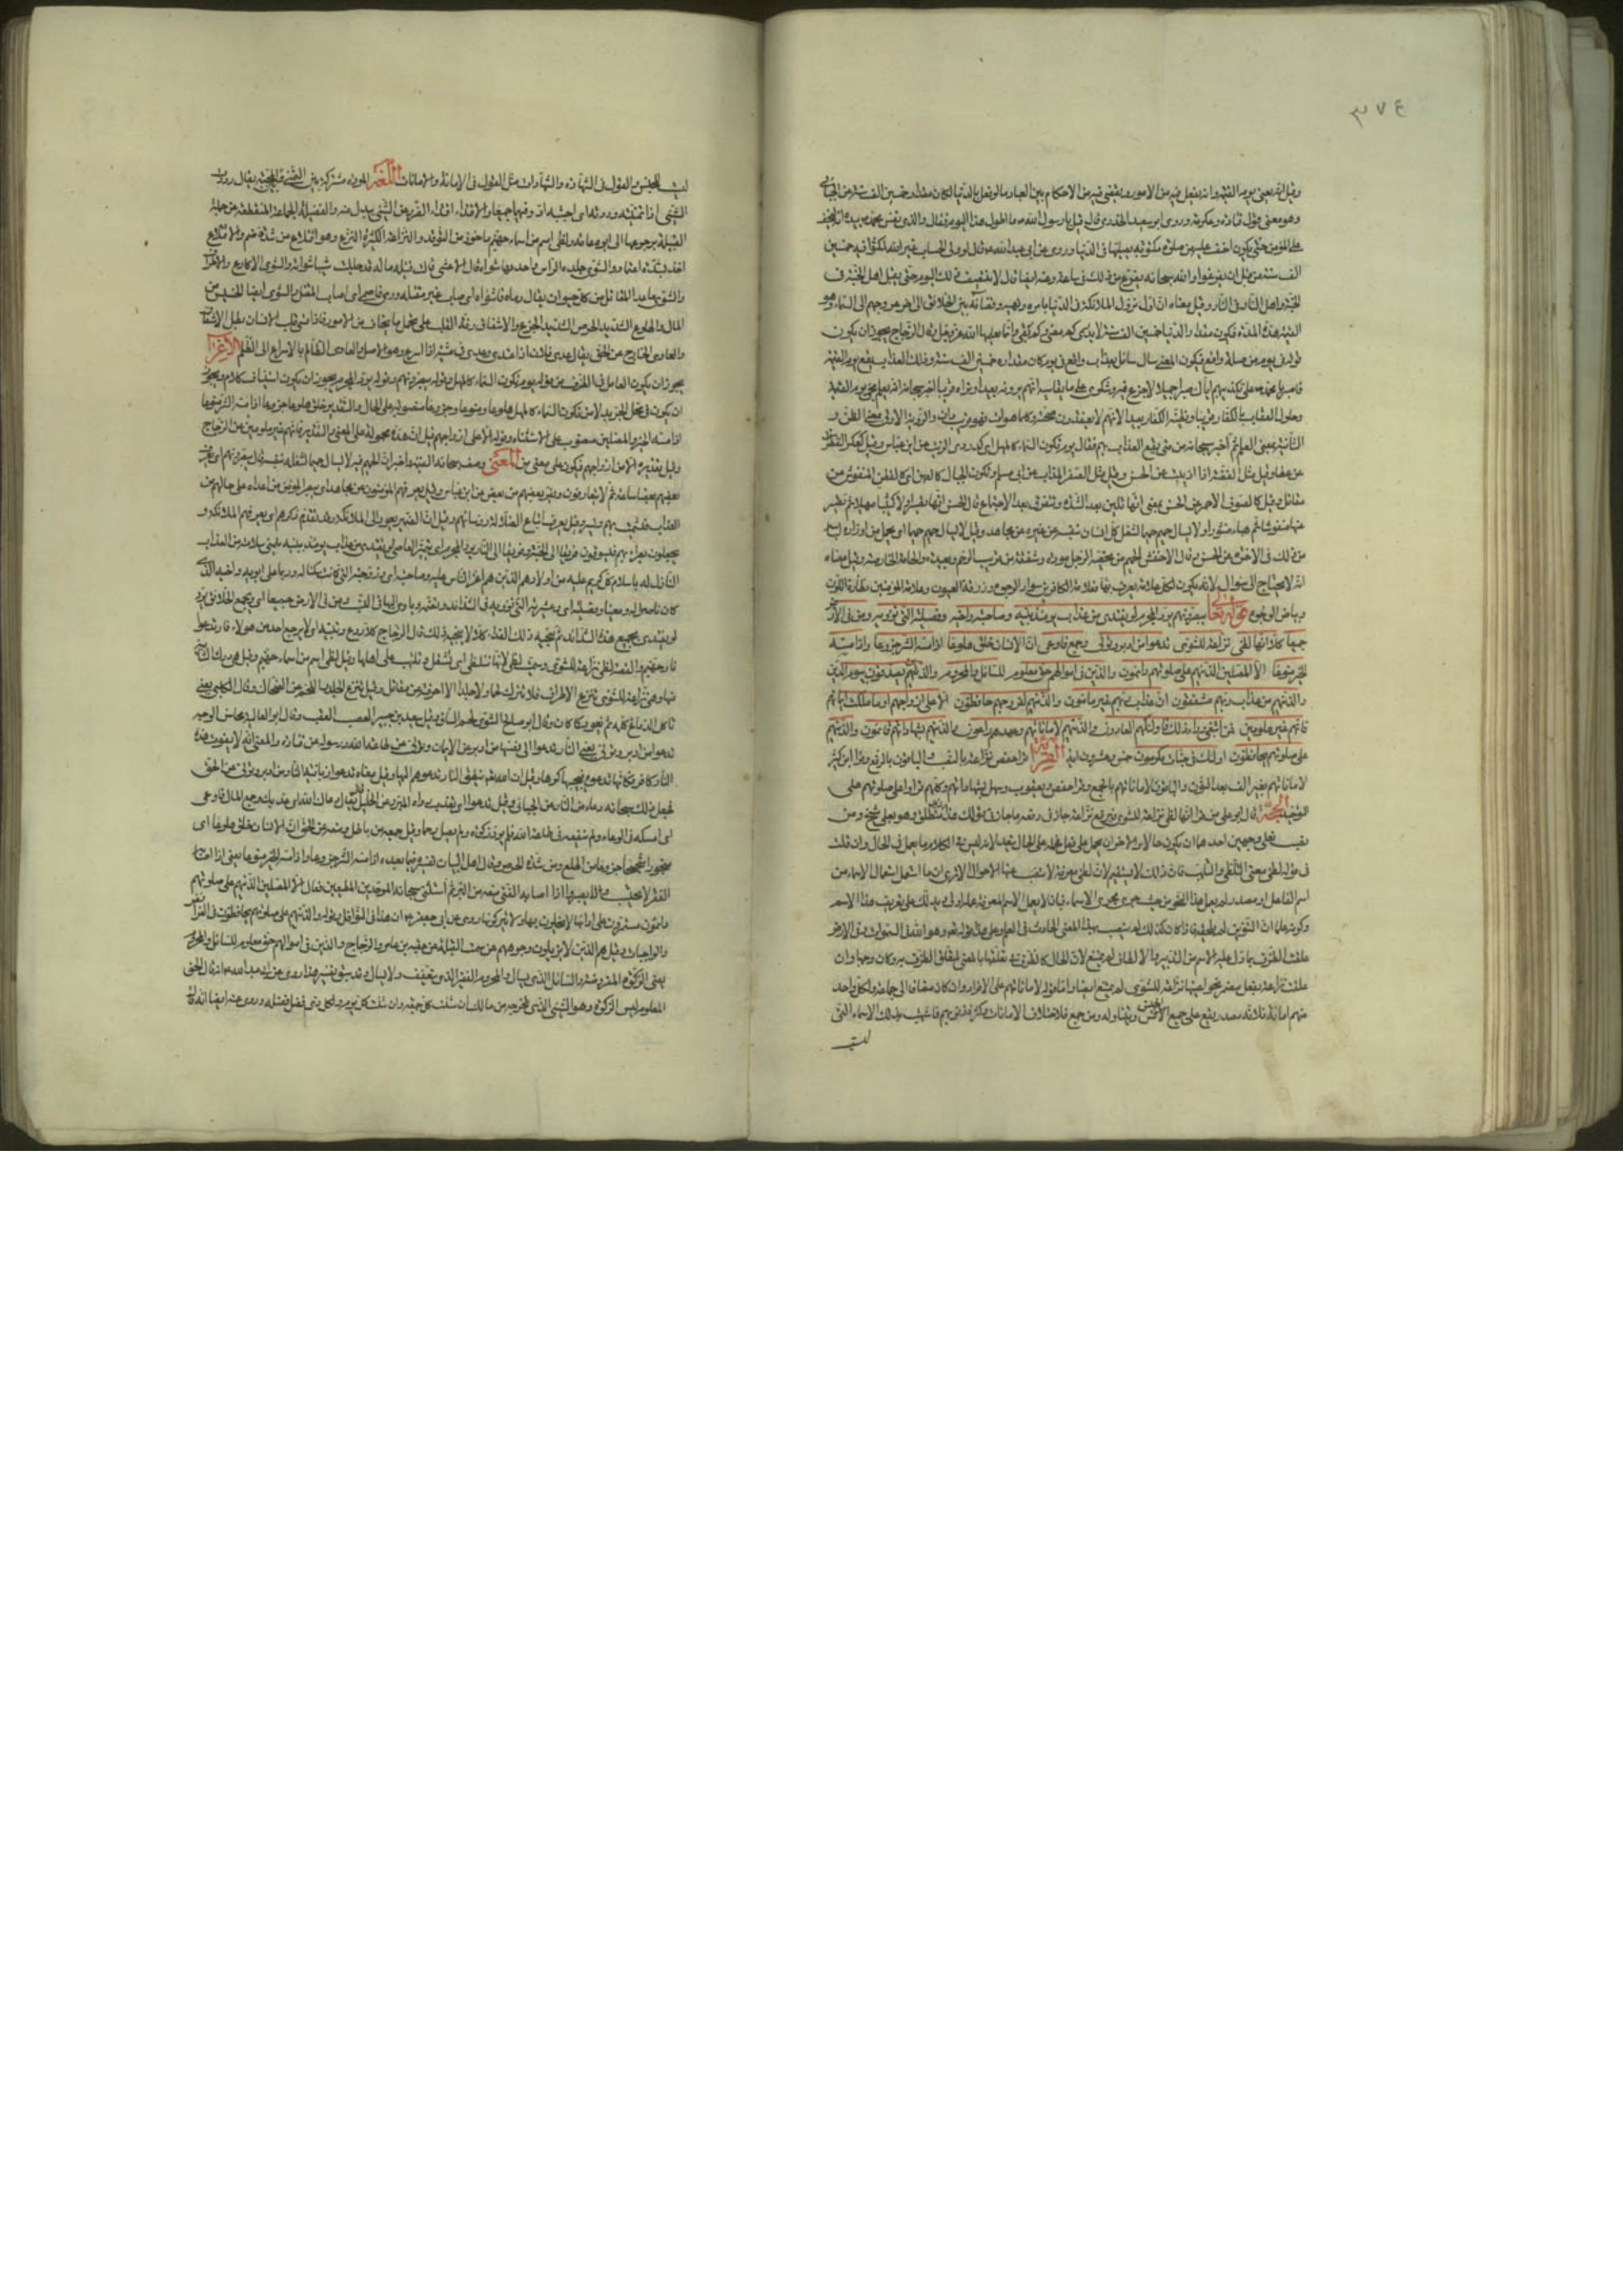 ٣٧٤
وقيل انه يعني يوم القيمة وانه يفعل فيه من الامور ويقضي فيه من الاحكام بين العباد ما لو فعل بالدنيا لكان مقداره خمسين الف سنة عن الجبائي
وهو معنى قول قتادة وعكرمة وروى ابو سعيد الخدري قال قيل يا رسول الله ما اطول هذا اليوم فقال والذي نفس محمد بيده انه ليخف
على المؤمن حتى يكون اخف عليه من صلوة مكتوبة يصليها في الدنيا وروي عن ابي عبد الله قال لو ولي الحساب غير الله لمكثوا فيه خمسين
الف سنة من قبل ان يفرغوا والله سبحانه يفرغ من ذلك في ساعة وعنه ايضا قال لا ينتصف ذلك اليوم حتى يقبل اهل الجنة في
الجنة واهل النار في النار وقيل معناه ان اول نزول الملائكة في الدنيا بامره ونهيه وقضائه بين الخلائق الى اخر عروجهم الى السماء وهو
القيمة هذه المدة فيكون مقدار الدنيا خمسين الف سنة لا يدرى كم مضى وكم بقي وانما يعلمها الله عز وجل وقال الزجاج يجوز ان يكون
قوله في يوم من صلة واقع فيكون المعنى سال سائل بعذاب واقع في يوم كان مقداره خمسين الف سنة وذلك العذاب يقع يوم القيمة
فاصبر يا محمد على تكذيبهم اياك صبرا جميلا لا جزع فيه ولا شكوى على ما تقاسيه انهم يرونه بعيدا ونراه قريبا اخبر سبحانه انه يعلم مجيء يوم القيمة
وحلول العقاب بالكفار قريبا ويظنه الكفار بعيدا لانهم لا يعتقدون صحته وكل ما هو ات فهو قريب دان والرؤية الاولى بمعنى الظن و
الثانية بمعنى العلم ثم اخبر سبحانه متى يقع العذاب بهم فقال يوم تكون السماء كالمهل اي كدردي الزيت عن ابن عباس وقيل كعكر القطران
عن عطا وقيل مثل الفضة اذا اذيبت عن الحسن وقيل مثل الصفر المذاب عن ابي مسلم وتكون الجبال كالعهن اي كالصوف المنفوش عن
مقاتل وقيل كالصوف الاحمر عن الحسن يعني انها تلين بعد الشدة وتتفرق بعد الاجتماع قال الحسن انها اولا كثيبا مهيلا ثم تصير
عهنا منفوشا ثم هباء منثورا ولا يسال حميم حميما لشغل كل انسان بنفسه عن غيره عن مجاهد وقيل لا يسال حميم حميما ان يحمل من اوزاره لياسه
من ذلك في الاخرة عن الحسن وقال الاخفش الحميم من يخصه الرجل مودة وشفقة من قريب الرحم وبعيده والحامة الخاصة وقيل معناه
انه لا يحتاج الى سؤال لانه يكون لكل علامة يعرف بها فعلامة الكافرين سواد الوجوه وزرقة العيون وعلامة المؤمنين نضارة اللون
وبياض الوجوه قوله تعالى يبصرونهم يود المجرم لو يفتدي من عذاب يومئذ ببنيه وصاحبته واخيه وفصيلته التي تؤويه ومن في الارض
جميعا كلا انها لظى نزاعة للشوى تدعوا من ادبر وتولى وجمع فاوعى ان الانسان خلق هلوعا اذا مسه الشر جزوعا واذا مسه
الخير منوعا الا المصلين الذين هم على صلوتهم دائمون والذين في اموالهم حق معلوم للسائل والمحروم والذين يصدقون بيوم الدين
والذين هم من عذاب ربهم مشفقون ان عذاب ربهم غير مامون والذين هم لفروجهم حافظون الا على ازواجهم او ما ملكت ايمانهم
فانهم غير ملومين فمن ابتغى وراء ذلك فاولئك هم العادون والذين هم لاماناتهم وعهدهم راعون والذين هم بشهاداتهم قائمون والذين هم
على صلوتهم يحافظون اولئك في جنات مكرمون خمس وعشرون اية القرءة قرا حفص نزاعة بالنصب والباقون بالرفع وقرا ابن كثير
لامانتهم بغير الف بعد النون والباقون لاماناتهم بالجمع وقرا حفص ويعقوب وسهل بشهاداتهم وكلهم قراوا على صلوتهم على
التوحيد الحجة قال ابو علي من قرا انها لظى نزاعة للشوى فرفع نزاعة جاز في رفعه ما جاز في قولك هذا زيد منطلق وهو بعلي شيخ ومن
نصب فعلى وجهين احدهما ان يكون حالا والاخر ان يحمل على فعل فحمله على الحال يبعد لانه ليس في الكلام ما يعمل في الحال فان قلت
في قوله لظى معنى التلظي والتلهب فان ذلك لا يستقيم لان لظى معرفة لا تنتصب عنها الاحوال الا ترى ان ما استعمل استعمال الاسماء من
اسم الفاعل او مصدر لم يعمل هذا النحو من حيث جرى مجرى الاسماء فبان لا يعمل الاسم المعرفة عمله اولى ويدلك على تعريف هذا الاسم
وكونه علما ان التنوين لم يلحقه فاذا كان كذلك لم تنتصب الحال عنه
علقت الظرف بما دل عليه الاسم من التدبير والالطاف لم يمتنع لان الحال كالظرف في تعلقها بالمعنى كتعلق الظرف به وكان وجها وان
علقت نزاعة بفعل مضمر نحو اعنيها نزاعة للشوى لم يمتنع ايضا واما قوله لاماناتهم على الافراد وان كان مضافا الى جماعة ولكل واحد
منهم امانة فلانه مصدر يقع على جميع الجنس ويتناوله ومن جمع فلاختلاف الامانات وكثرة ضروبها فاشبهت بذلك الاسماء التي
ليست
ليست للجنس والقول في الشهادة والشهادات مثل القول في الامانة والامانات اللغة المودة مشتركة بين التمني وبين المحبة يقال وددت
الشيء اذا تمنيته ووددته اي احببته اود فيهما جميعا والافتداء افتداء الضرر عن الشيء ببدل منه والفصيلة الجماعة المنقطعة عن جملة
القبيلة برجوعها الى ابوة خاصة ولظى اسم من اسماء جهنم ماخوذ من التوقد والنزاعة الكثيرة النزع وهو اقتلاع عن شدة ضم والاقتلاع
اخذ بشدة اعتماد والشوى جلدة الراس واحدتها شواة قال الاعشى قالت قتيلة ما له قد جللت شيبا شواته والشوى الاكارع والاطراف
والشوى ما عدا المقاتل من كل حيوان يقال رماه فاشواه اي اصاب غير مقتله ورمى فاصمى اي اصاب المقتل والشوى ايضا الخسيس من
المال والهلوع الشديد الحرص الشديد الجزع والاشفاق رقة القلب على تحمل ما يخاف من الامور فاذا قسى قلب الانسان بطل الاشفاق
والعادي الخارج عن الحق يقال عدى فلان اذا اعتدى وعدى في مشيه اذا اسرع وهو الاصل والعادي الظالم بالاسراع الى الظلم الاعراب
يجوز ان يكون العامل في الظرف من قوله يوم تكون السماء كالمهل قوله يبصرونهم وقوله يود المجرم يجوز ان يكون استيناف كلام ويجوز
ان يكون في محل الجر بدلا من تكون السماء كالمهل هلوعا وجزوعا ومنوعا منصوبة على الحال والتقدير خلق هلوعا جزوعا اذا مسه الشر منوعا
اذا مسه الخير والمصلين منصوب على الاستثناء وقوله الا على ازواجهم قيل ان هذه محمولة على المعنى والتقدير فانهم غير ملومين عن الزجاج
وقيل تقديره الا من ازواجهم فيكون على بمعنى من المعنى وصف سبحانه القيمة واخبر ان الحميم فيه لا يسال حميمه لشغله بنفسه فقال يبصرونهم اي يعرف
بعضهم بعضا ساعة ثم لا يتعارفون ويفر بعضهم من بعض عن ابن عباس وقيل يعرفهم المؤمنون عن مجاهد اي يبصر المؤمن اعداءه على حالهم من
العذاب فيشمت بهم ويسر وقيل يعرف اتباع الضلالة رؤساءهم وقيل ان الضمير يعود الى الملائكة وقد تقدم ذكرهم اي يعرفهم الملائكة و
يجعلون بصراء بهم فيسوقون فريقا الى الجنة وفريقا الى النار يود المجرم اي يتمنى العاصي لو يفتدي من عذاب يومئذ ببنيه يتمنى سلامته من العذاب
النازل به باسلام كل كريم عليه من اولاده الذين هم اعز الناس عليه وصاحبته اي زوجته التي كانت سكنا له وربما على ابويه واخيه الذي
كان ناصرا له ومعينا وفصيلته اي وعشيرته التي تؤويه في الشدائد وتضمه وياوي اليها في النسب ومن في الارض جميعا اي وبجميع الخلائق يود
لو يفتدي بجميع هذه الاشياء ثم ينجيه ذلك الفداء كلا لا ينجيه ذلك قال الزجاج كلا ردع وتنبيه اي لا يرجع احد من هؤلاء فارتدعوا
نار جهنم والقصة لظى نزاعة للشوى وسميت لظى لانها تتلظى اي تشتعل وتلتهب على اهلها وقيل لظى اسم من اسماء جهنم وقيل هي دركة الثانية
منها وهي نزاعة للشوى تنزع الاطراف فلا تترك لحما ولا جلدا الا احرقته عن مقاتل وقيل تنزع الجلد واللحم عن العظم عن الضحاك وقال الكلبي يعني
تاكل الدماغ كله ثم يعود كما كان وقال ابو صالح الشوى لحم الساق وقيل سعيد بن جبير العصب والعقب وقال ابو العالية محاسن الوجه
تدعوا من ادبر وتولى يعني النار تدعوا الى نفسها من ادبر عن الايمان وتولى عن طاعة الله ورسوله عن قتادة والمعنى انه لا يفوت هذه
النار كافر فكانها تدعوه فيجيبها كرها وقيل ان الله ينطق النار تدعوهم اليها وقيل معناه تدعوا زبانية النار من ادبر وتولى عن الحق
فجعل ذلك سبحانه دعاء من النار عن الجبائي وقيل تدعوا اي تعذب رواه المبرد عن الخليل قال يقال دعاك الله اي عذبك وجمع المال فاوعى
اي امسكه في الوعاء ولم ينفقه في طاعة الله فلم يؤد زكوة ولم يصل رحما وقيل جمعه من باطل ومنعه عن الحق ان الانسان خلق هلوعا اي
ضجورا شحيحا جزوعا من الهلع وهو شدة الحرص وقال اهل البيان تفسيره فيما بعده اذا مسه الشر جزوعا واذا مسه الخير منوعا يعني اذا اصابه
الفقر لا يحتسب ولا يصبر واذا اصابه الغنى منعه من البر ثم استثنى سبحانه الموحدين المطيعين فقال الا المصلين الذين هم على صلوتهم
دائمون مستمرون على ادائها لا يخلون بها ولا يتركونها وروي عن ابي جعفر ان هذا في النوافل وقوله والذين هم على صلوتهم يحافظون في الفرائض
والواجبات وقيل هم الذين لا يزيلون وجوههم عن سمت القبلة عن عقبة بن عامر والزجاج والذين في اموالهم حق معلوم للسائل والمحروم
يعني الزكوة المفروضة والسائل الذي يسال والمحروم الفقير الذي يتعفف ولا يسال وقد سبق تفسير هذا وروي عن ابي عبد الله انه قال الحق
المعلوم ليس الزكوة وهو الشيء الذي تخرجه من مالك ان شئت كل جمعة وان شئت كل يوم ولكل ذي فضل فضله وروي عنه ايضا انه قال